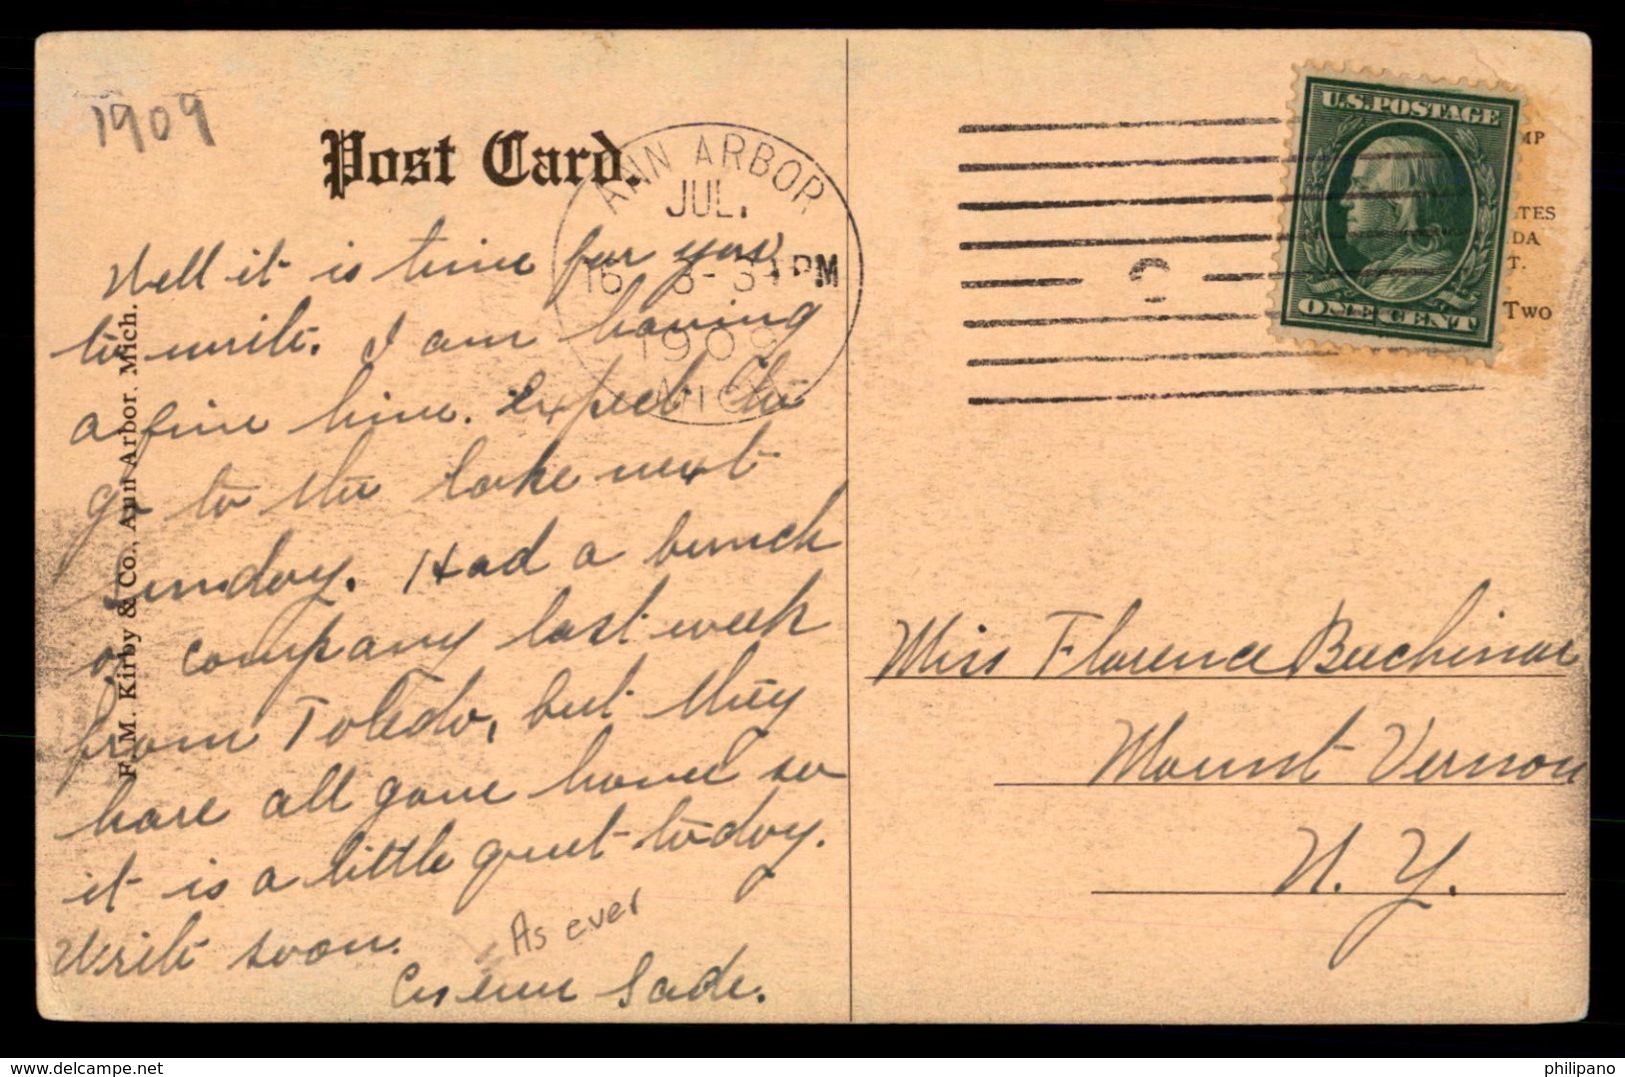 1909
Post Card.
ANN ARBOR
JUL.
16 3-30 PM
1909
MICH.
U.S. POSTAGE
ONE CENT
MP
TES
DA
T.
Two
Well it is time for you
to write. I am having
a fine time. Expect to
go to the lake next
Sunday. Had a bunch
of company last week
from Toledo, but they
have all gone home so
it is a little quiet today.
Write soon.
As ever
Sade.
F. M. Kirby & Co., Ann Arbor. Mich.
Miss Florence
Mount Vernon
N. Y.
www.delcampe.net
philipano